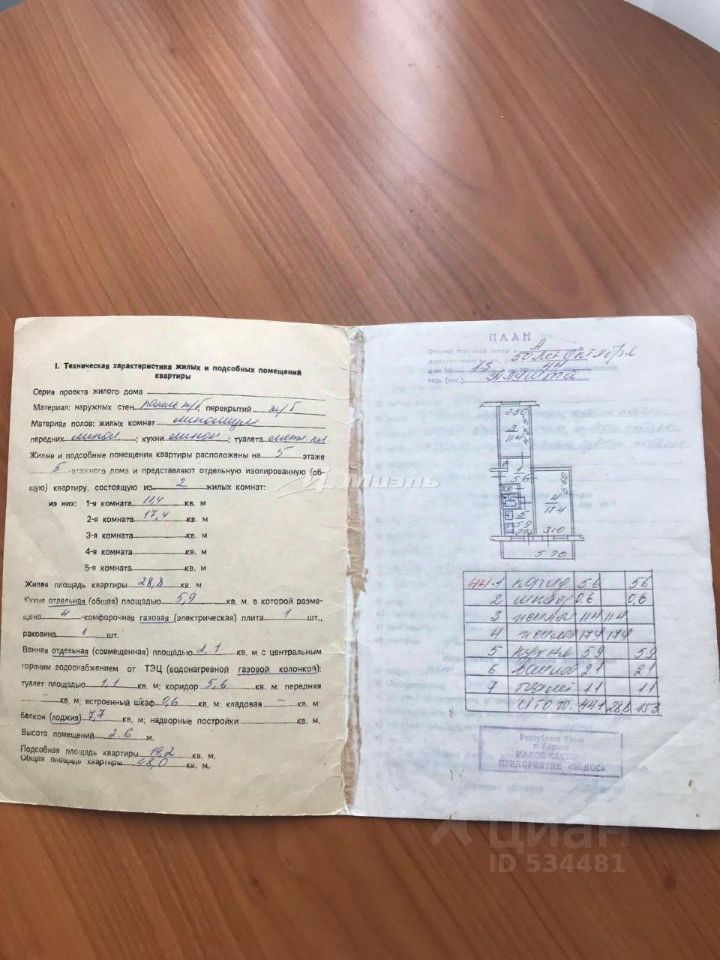 I. Техническая характеристика жилых и подсобных помещений
квартиры
Серия проекта жилого дома
Материал: наружных стен панель ж/б, перекрытий ж/б
Материал полов: жилых комнат линолеум
передних линол; кухни линол; туалета
Жилые и подсобные помещения квартиры расположены на 5 этаже
5 -этажного дома и представляют отдельную изолированную (об-
щую) квартиру, состоящую из 2 жилых комнат:
из них: 1-я комната 11,4 кв. м
2-я комната 17,4 кв. м
3-я комната кв. м
4-я комната кв. м
5-я комната кв. м
Жилая площадь квартиры 28,8 кв. м
Кухня отдельная (общая) площадью 5,9 кв. м, в которой разме-
щена 4 -комфорочная газовая (электрическая) плита 1 шт.,
раковина 1 шт.
Ванная отдельная (совмещенная) площадью 2,1 кв. м с центральным
горячим водоснабжением от ТЭЦ (водонагревной газовой колонкой);
туалет площадью 1,1 кв. м; коридор 5,6 кв. м; передняя
— кв. м; встроенный шкаф 0,6 кв. м; кладовая — кв. м;
балкон (лоджия) 7,7 кв. м; надворные постройки кв. м.
Высота помещений 2,6 м.
Подсобная площадь квартиры 19,2 кв. м.
Общая площадь квартиры 48,0 кв. м.
ПЛАН
50 лет Октября
дом № 13 44
гор. (пос.) Алушта
250
2
11.4
1
5.6
5.9
4
17.4
560
310
5.70
44-1 корид 5.6 5.6
2 шкаф 0,6 0,6
3 жилая 11.4 11.4
4 жилая 17.4 17.4
5 кухня 5.9 5.9
6 ванная 2.1 2.1
7 туалет 1.1 1.1
Итого 44.1 28.8 15.3
Республика Крым
г. Алушта
МАЛОЕ ЧАСТНОЕ
ПРЕДПРИЯТИЕ
МИЭЛЬ
циан
ID 534481